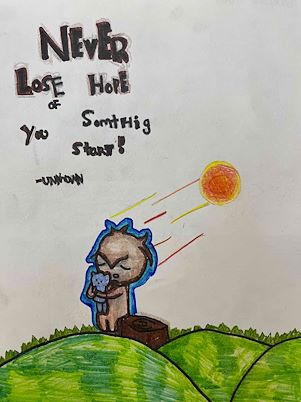 NEVER
LOSE HOPE
OF
You Somthig
Start!
-UNNOWN